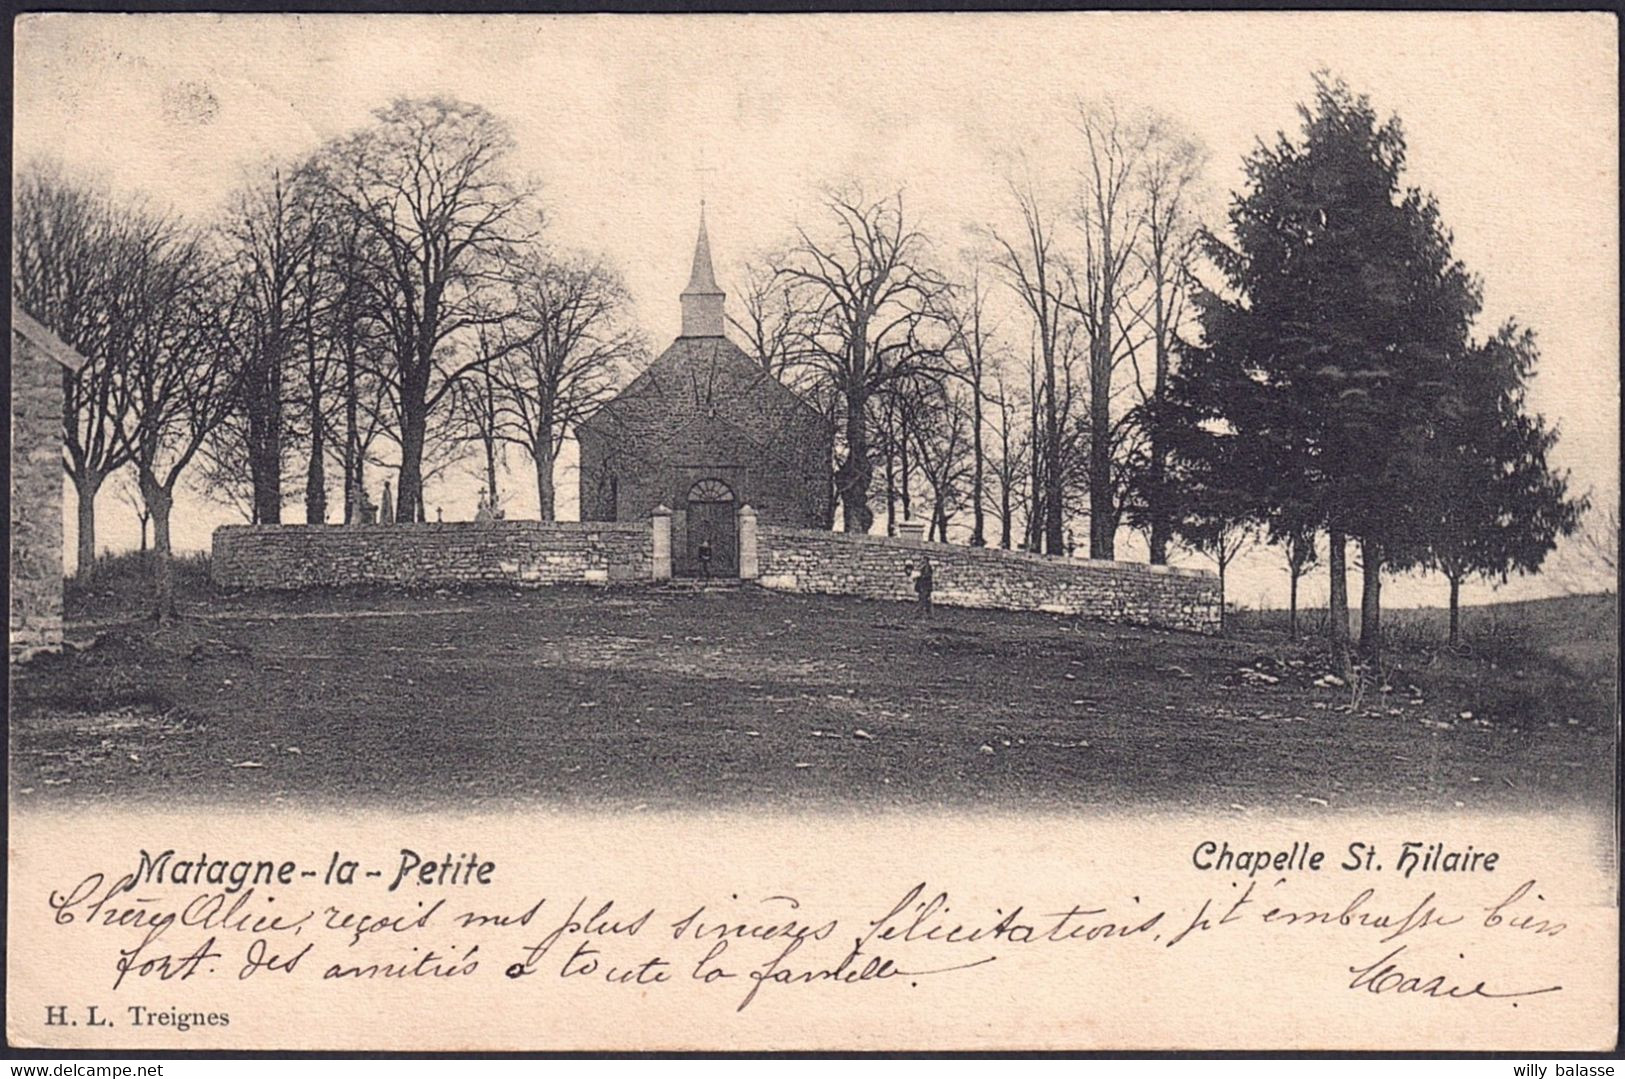 Matagne-la-Petite
Chapelle St. Hilaire
Chère Alice, reçois mes plus sincères félicitations, je t'embrasse bien
fort. Des amitiés à toute la famille.
Marie.
H. L. Treignes
Delcampe.net
willy balasse